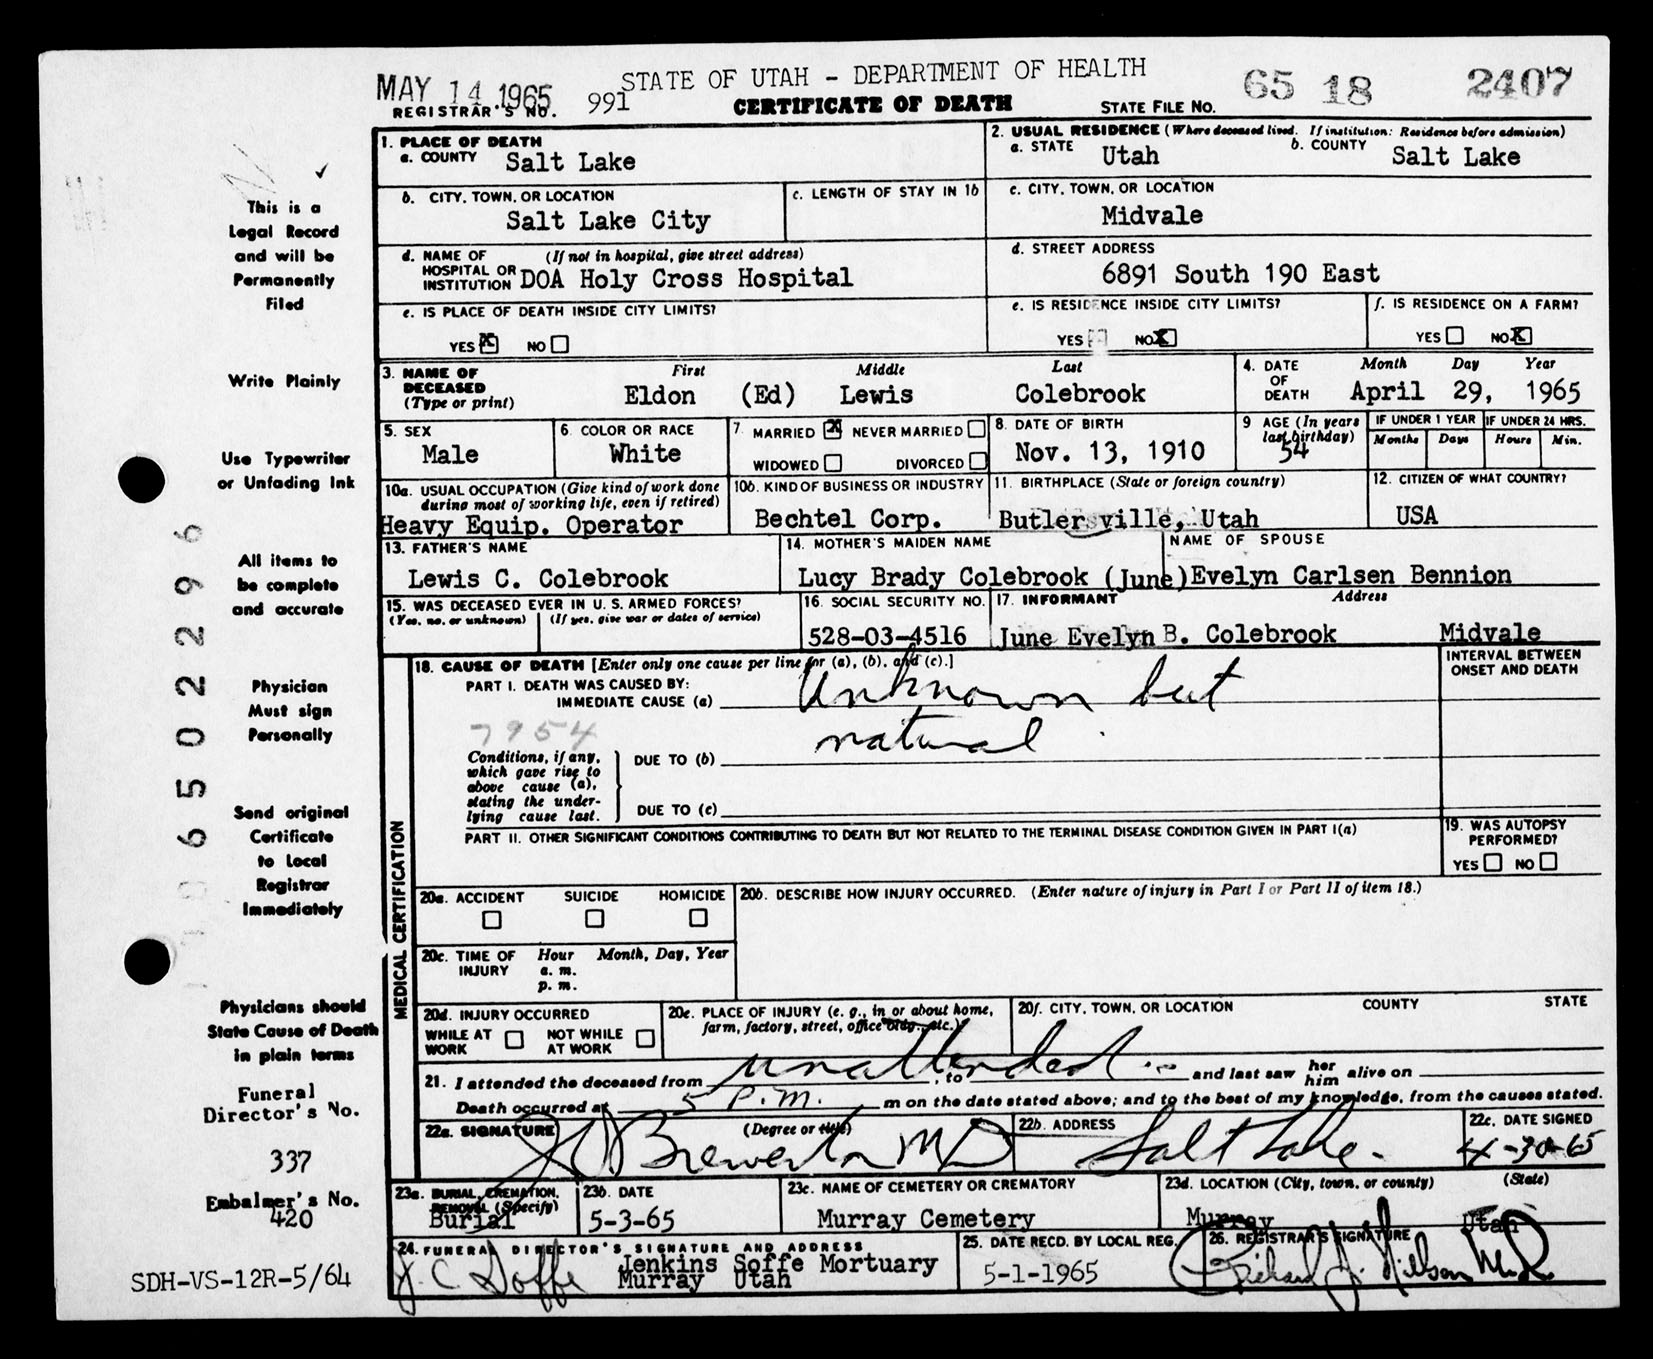 MAY 14 1965
STATE OF UTAH - DEPARTMENT OF HEALTH
65 18 2407
REGISTRAR'S NO. 991
CERTIFICATE OF DEATH
STATE FILE NO.
1. PLACE OF DEATH
a. COUNTY Salt Lake
2. USUAL RESIDENCE (Where deceased lived. If institution: Residence before admission)
a. STATE Utah b. COUNTY Salt Lake
b. CITY, TOWN, OR LOCATION
Salt Lake City
c. LENGTH OF STAY IN 1b
c. CITY, TOWN, OR LOCATION
Midvale
d. NAME OF (If not in hospital, give street address)
HOSPITAL OR
INSTITUTION DOA Holy Cross Hospital
d. STREET ADDRESS
6891 South 190 East
e. IS PLACE OF DEATH INSIDE CITY LIMITS?
YES X NO
e. IS RESIDENCE INSIDE CITY LIMITS?
YES NO X
f. IS RESIDENCE ON A FARM?
YES NO X
3. NAME OF
DECEASED
(Type or print)
First Middle Last
Eldon (Ed) Lewis Colebrook
4. DATE
OF
DEATH
Month Day Year
April 29, 1965
5. SEX
Male
6. COLOR OR RACE
White
7. MARRIED X NEVER MARRIED
WIDOWED DIVORCED
8. DATE OF BIRTH
Nov. 13, 1910
9 AGE (In years
last birthday)
54
IF UNDER 1 YEAR
Months Days
IF UNDER 24 HRS.
Hours Min.
10a. USUAL OCCUPATION (Give kind of work done
during most of working life, even if retired)
Heavy Equip. Operator
10b. KIND OF BUSINESS OR INDUSTRY
Bechtel Corp.
11. BIRTHPLACE (State or foreign country)
Butlersville, Utah
12. CITIZEN OF WHAT COUNTRY?
USA
13. FATHER'S NAME
Lewis C. Colebrook
14. MOTHER'S MAIDEN NAME
Lucy Brady Colebrook
NAME OF SPOUSE
(June) Evelyn Carlsen Bennion
15. WAS DECEASED EVER IN U. S. ARMED FORCES?
(Yes, no, or unknown) (If yes, give war or dates of service)
16. SOCIAL SECURITY NO.
528-03-4516
17. INFORMANT Address
June Evelyn B. Colebrook Midvale
MEDICAL CERTIFICATION
18. CAUSE OF DEATH [Enter only one cause per line for (a), (b), and (c).]
PART I. DEATH WAS CAUSED BY:
IMMEDIATE CAUSE (a) Unknown but
natural
7954
Conditions, if any,
which gave rise to
above cause (a),
stating the under-
lying cause last.
DUE TO (b)
DUE TO (c)
INTERVAL BETWEEN
ONSET AND DEATH
PART II. OTHER SIGNIFICANT CONDITIONS CONTRIBUTING TO DEATH BUT NOT RELATED TO THE TERMINAL DISEASE CONDITION GIVEN IN PART I(a)
19. WAS AUTOPSY
PERFORMED?
YES NO
20a. ACCIDENT SUICIDE HOMICIDE
20b. DESCRIBE HOW INJURY OCCURRED. (Enter nature of injury in Part I or Part II of item 18.)
20c. TIME OF Hour Month, Day, Year
INJURY a. m.
p. m.
20d. INJURY OCCURRED
WHILE AT NOT WHILE
WORK AT WORK
20e. PLACE OF INJURY (e. g., in or about home,
farm, factory, street, office bldg., etc.)
20f. CITY, TOWN, OR LOCATION COUNTY STATE
21. I attended the deceased from unattended, to and last saw her him alive on
Death occurred at 5 P.M. m on the date stated above; and to the best of my knowledge, from the causes stated.
22a. SIGNATURE (Degree or title)
Brewerton MD
22b. ADDRESS
Salt Lake.
22c. DATE SIGNED
4-30-65
23a. BURIAL, CREMATION,
REMOVAL (Specify)
Burial
23b. DATE
5-3-65
23c. NAME OF CEMETERY OR CREMATORY
Murray Cemetery
23d. LOCATION (City, town, or county) (State)
Murray Utah
24. FUNERAL DIRECTOR'S SIGNATURE AND ADDRESS
J. C. Soffe
Jenkins Soffe Mortuary
Murray Utah
25. DATE RECD. BY LOCAL REG.
5-1-1965
26. REGISTRAR'S SIGNATURE
Richard J. Nilson M.D.
This is a
Legal Record
and will be
Permanently
Filed
Write Plainly
Use Typewriter
or Unfading Ink
All items to
be complete
and accurate
Physician
Must sign
Personally
Send original
Certificate
to Local
Registrar
Immediately
Physicians should
State Cause of Death
in plain terms
Funeral
Director's No.
337
Embalmer's No.
420
SDH-VS-12R-5/64
6502296